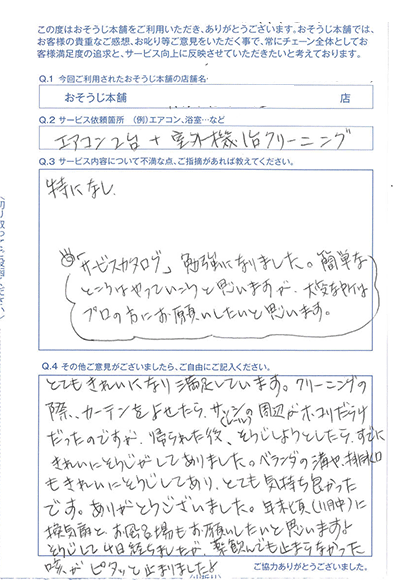 この度はおそうじ本舗をご利用いただき、ありがとうございます。おそうじ本舗では、
お客様の貴重なご感想、お叱り等ご意見をいただく事で、常にチェーン全体としてお
客様満足度の追求と、サービス向上に反映させていただきたいと考えております。
Q.1 今回ご利用されたおそうじ本舗の店舗名
おそうじ本舗 店
Q.2 サービス依頼箇所 (例)エアコン、浴室…など
エアコン2台 + 室外機1台クリーニング
Q.3 サービス内容について不満な点、ご指摘があれば教えてください。
特になし
「サービスカタログ」勉強になりました。簡単な
ところはやっていこうと思いますが、大変な所は
プロの方にお願いしたいと思います。
Q.4 その他ご意見がございましたら、ご自由にご記入ください。
とてもきれいになり満足しています。クリーニングの
際、カーテンをよせたら、サッシの周辺がホコリだらけ
(レール)
だったのですが、帰られた後、そうじしようとしたら、すでに
きれいにそうじがしてありました。ベランダの溝や、排水口
もきれいにそうじしてあり、とても気持ち良かった
です。ありがとうございました。年末頃(11月中)に
換気扇と、お風呂場もお願いしたいと思いますよ
そうじして4日経ちましたが、薬飲んでも止まらなかった
咳がピタッと止まりました♪
ご協力ありがとうございました。